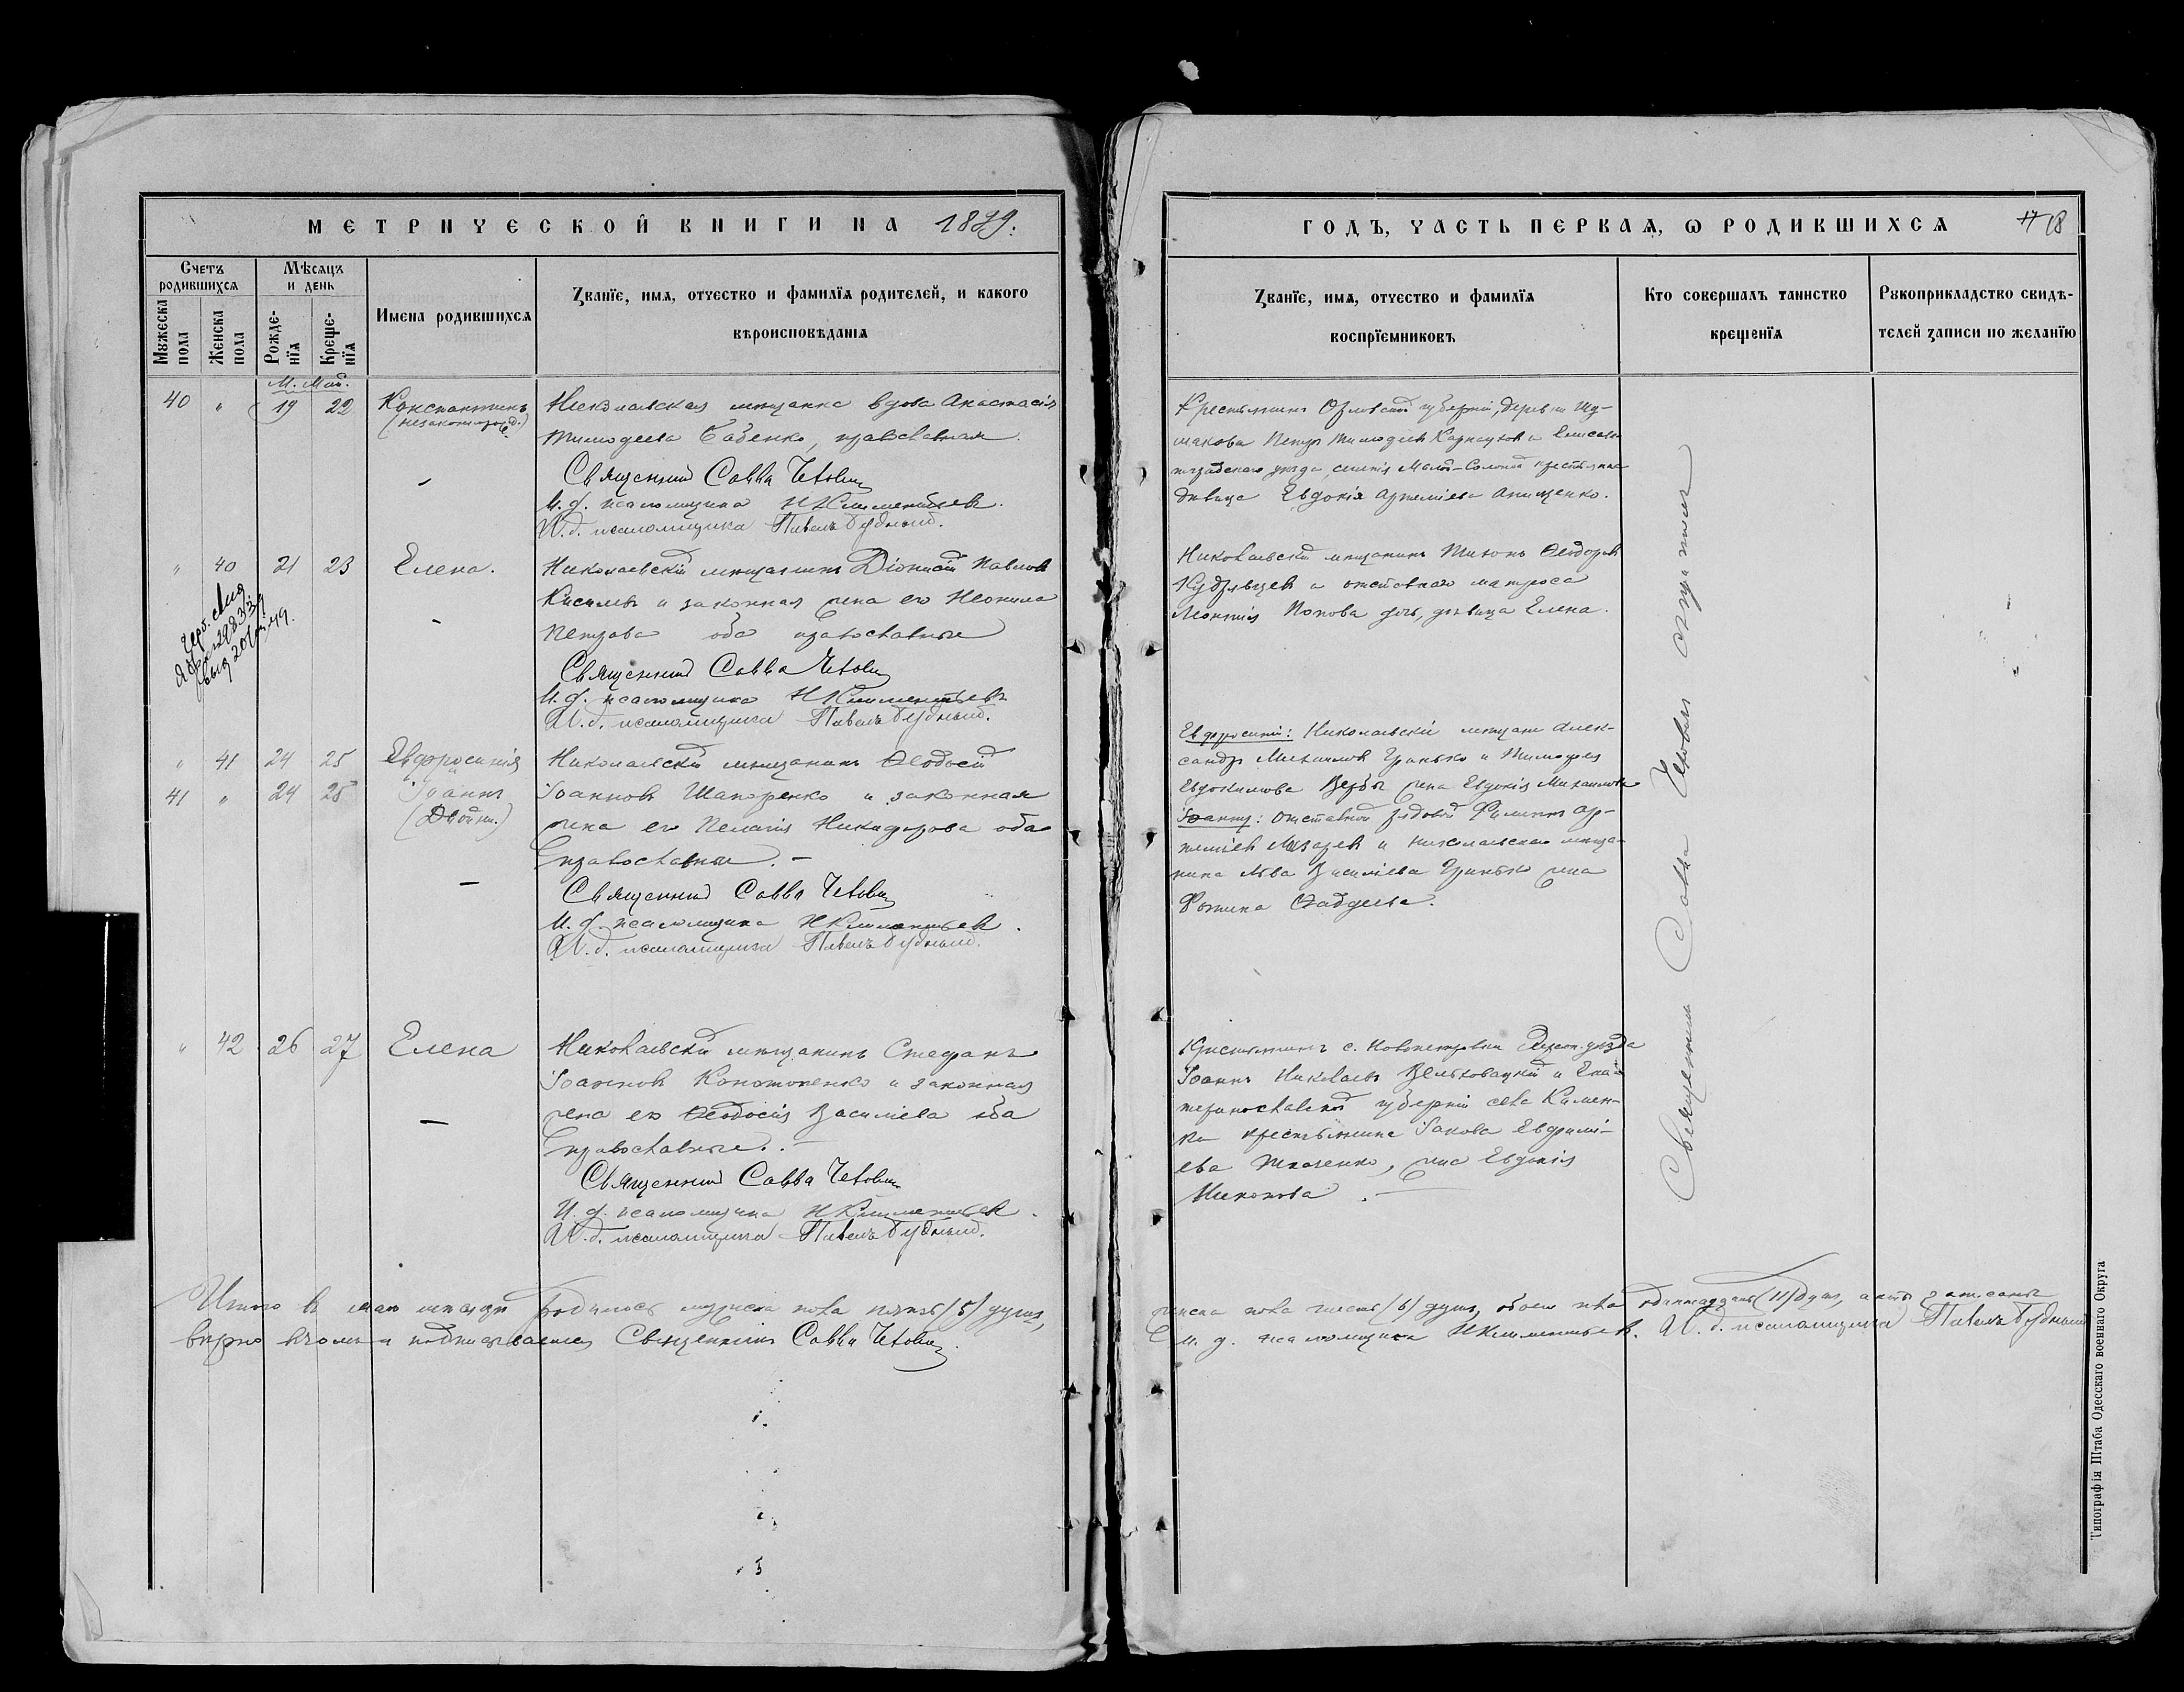 МЕТРИЧЕСКОЙ КНИГИ НА 1879.
Счетъ родившихся
Мужеска пола
Женска пола
Мѣсяцъ и день
Рожденїя
Крещенїя
Имена родившихся
Званїе, имя, отчество и фамилїя родителей, и какого
вѣроисповѣданія
М. Май.
40 " 19 22 Константинъ
(незаконнорожд.)
Николаевская мѣщанка вдова Анастасія
Тимофеева Бабенко, православная.
Священникъ Савва
И. д. псаломщика Н Климентьевъ.
И. д. псаломщика Павелъ Бѣдный.
" 40 21 23 Елена.
Николаевскій мѣщанинъ Діонисій Павловъ
Киселевъ и законная жена его Неонила
Петрова оба православные
Священникъ Савва
И. д. псаломщика Н Климентьевъ
И. д. псаломщика Павелъ Бѣдный.
" 41 24 25 Евфросинія
41 " 24 25 Іоаннъ
(Двойни.)
Николаевскій мѣщанинъ Ѳеодосій
Іоанновъ Шапоренко и законная
жена его Пелагія Никифорова оба
православные.
Священникъ Савва
И. д. псаломщика Н Климентьевъ.
И. д. псаломщика Павелъ Бѣдный.
" 42 26 27 Елена
Николаевскій мѣщанинъ Стефанъ
Іоанновъ Конотопенко и законная
жена его Ѳеодосія Василіева оба
православные.
Священникъ Савва
И. д. псаломщика Н Климентьевъ.
И. д. псаломщика Павелъ Бѣдный.
Итого въ маѣ мѣсяцѣ родилось мужеска пола пять (5) душъ,
вѣрно въ чемъ и подписываемся Священникъ Савва
ГОДЪ, ЧАСТЬ ПЕРВАЯ, Ѡ РОДИВШИХСЯ 18
Званїе, имя, отчество и фамилїя
воспрїемниковъ
Кто совершалъ таинство
крещенїя
Рукоприкладство свидѣ-
телей записи по желанїю
Крестьянинъ Орловской губерніи, деревни
Петръ Тимофеевъ Карнауховъ и Елисавет-
градскаго уѣзда, крестьянка
дѣвица Евдокія Артеміева Анищенко.
Николаевскій мѣщанинъ Тихонъ Ѳеодоровъ
Кудрявцевъ и отставнаго матроса
Леонтія Попова дочь, дѣвица Елена.
Евфросиніи: Николаевскій мѣщан. Алек-
сандръ Михаиловъ Гринько и Тимофея
Евдокимова Вербы жена Евдокія Михаилова
Іоанну: отставной рядовой Филиппъ Ар-
теміевъ Лазаревъ и николаевскаго мѣща-
нина Льва Василіева Гринько жена
Фотина Ѳаддеева.
Крестьянинъ с. Новопетровки Херсон. уѣзда
Іоаннъ Николаевъ и Ека-
теринославской губерніи села Камен-
ки крестьянина Іакова Евфимі-
ева Ткаченко, жена Евдокія
Никонова.
Священникъ Савва
женска пола шесть (6) душъ, обоего пола одиннадцать (11) душъ, акты записаны
И. д. псаломщика Н Климентьевъ. И. д. псаломщика Павелъ Бѣдный
Типографія Штаба Одесскаго военнаго Округа